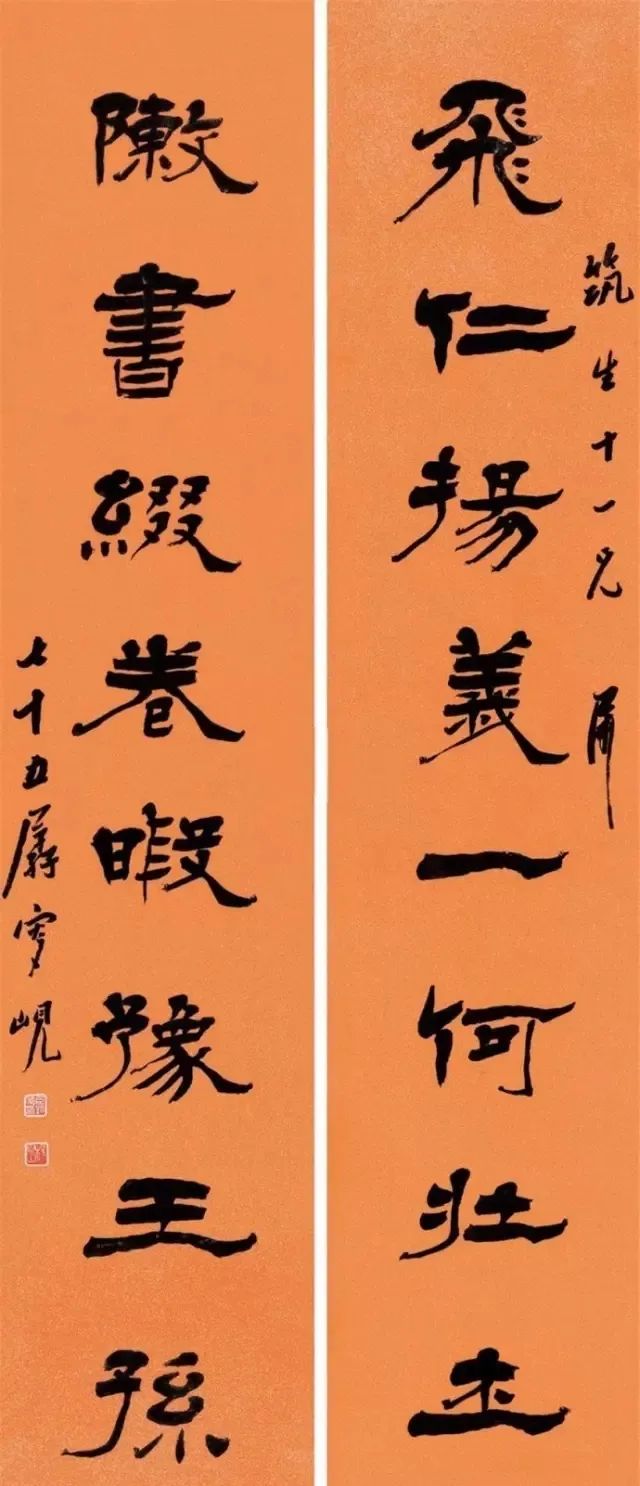 飛仁揚義一何壯士
筑生十一兄屬
敶書綴卷暇豫王孫
七十五孱叟峴